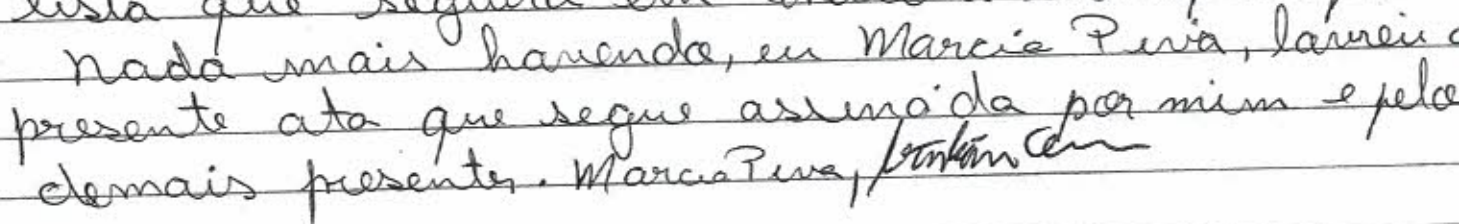 lista que seguirá em
Nada mais havendo, eu Marcia Piva, lavrei a
presente ata que segue assinada por mim e pelos
demais presentes. Marcia Piva,